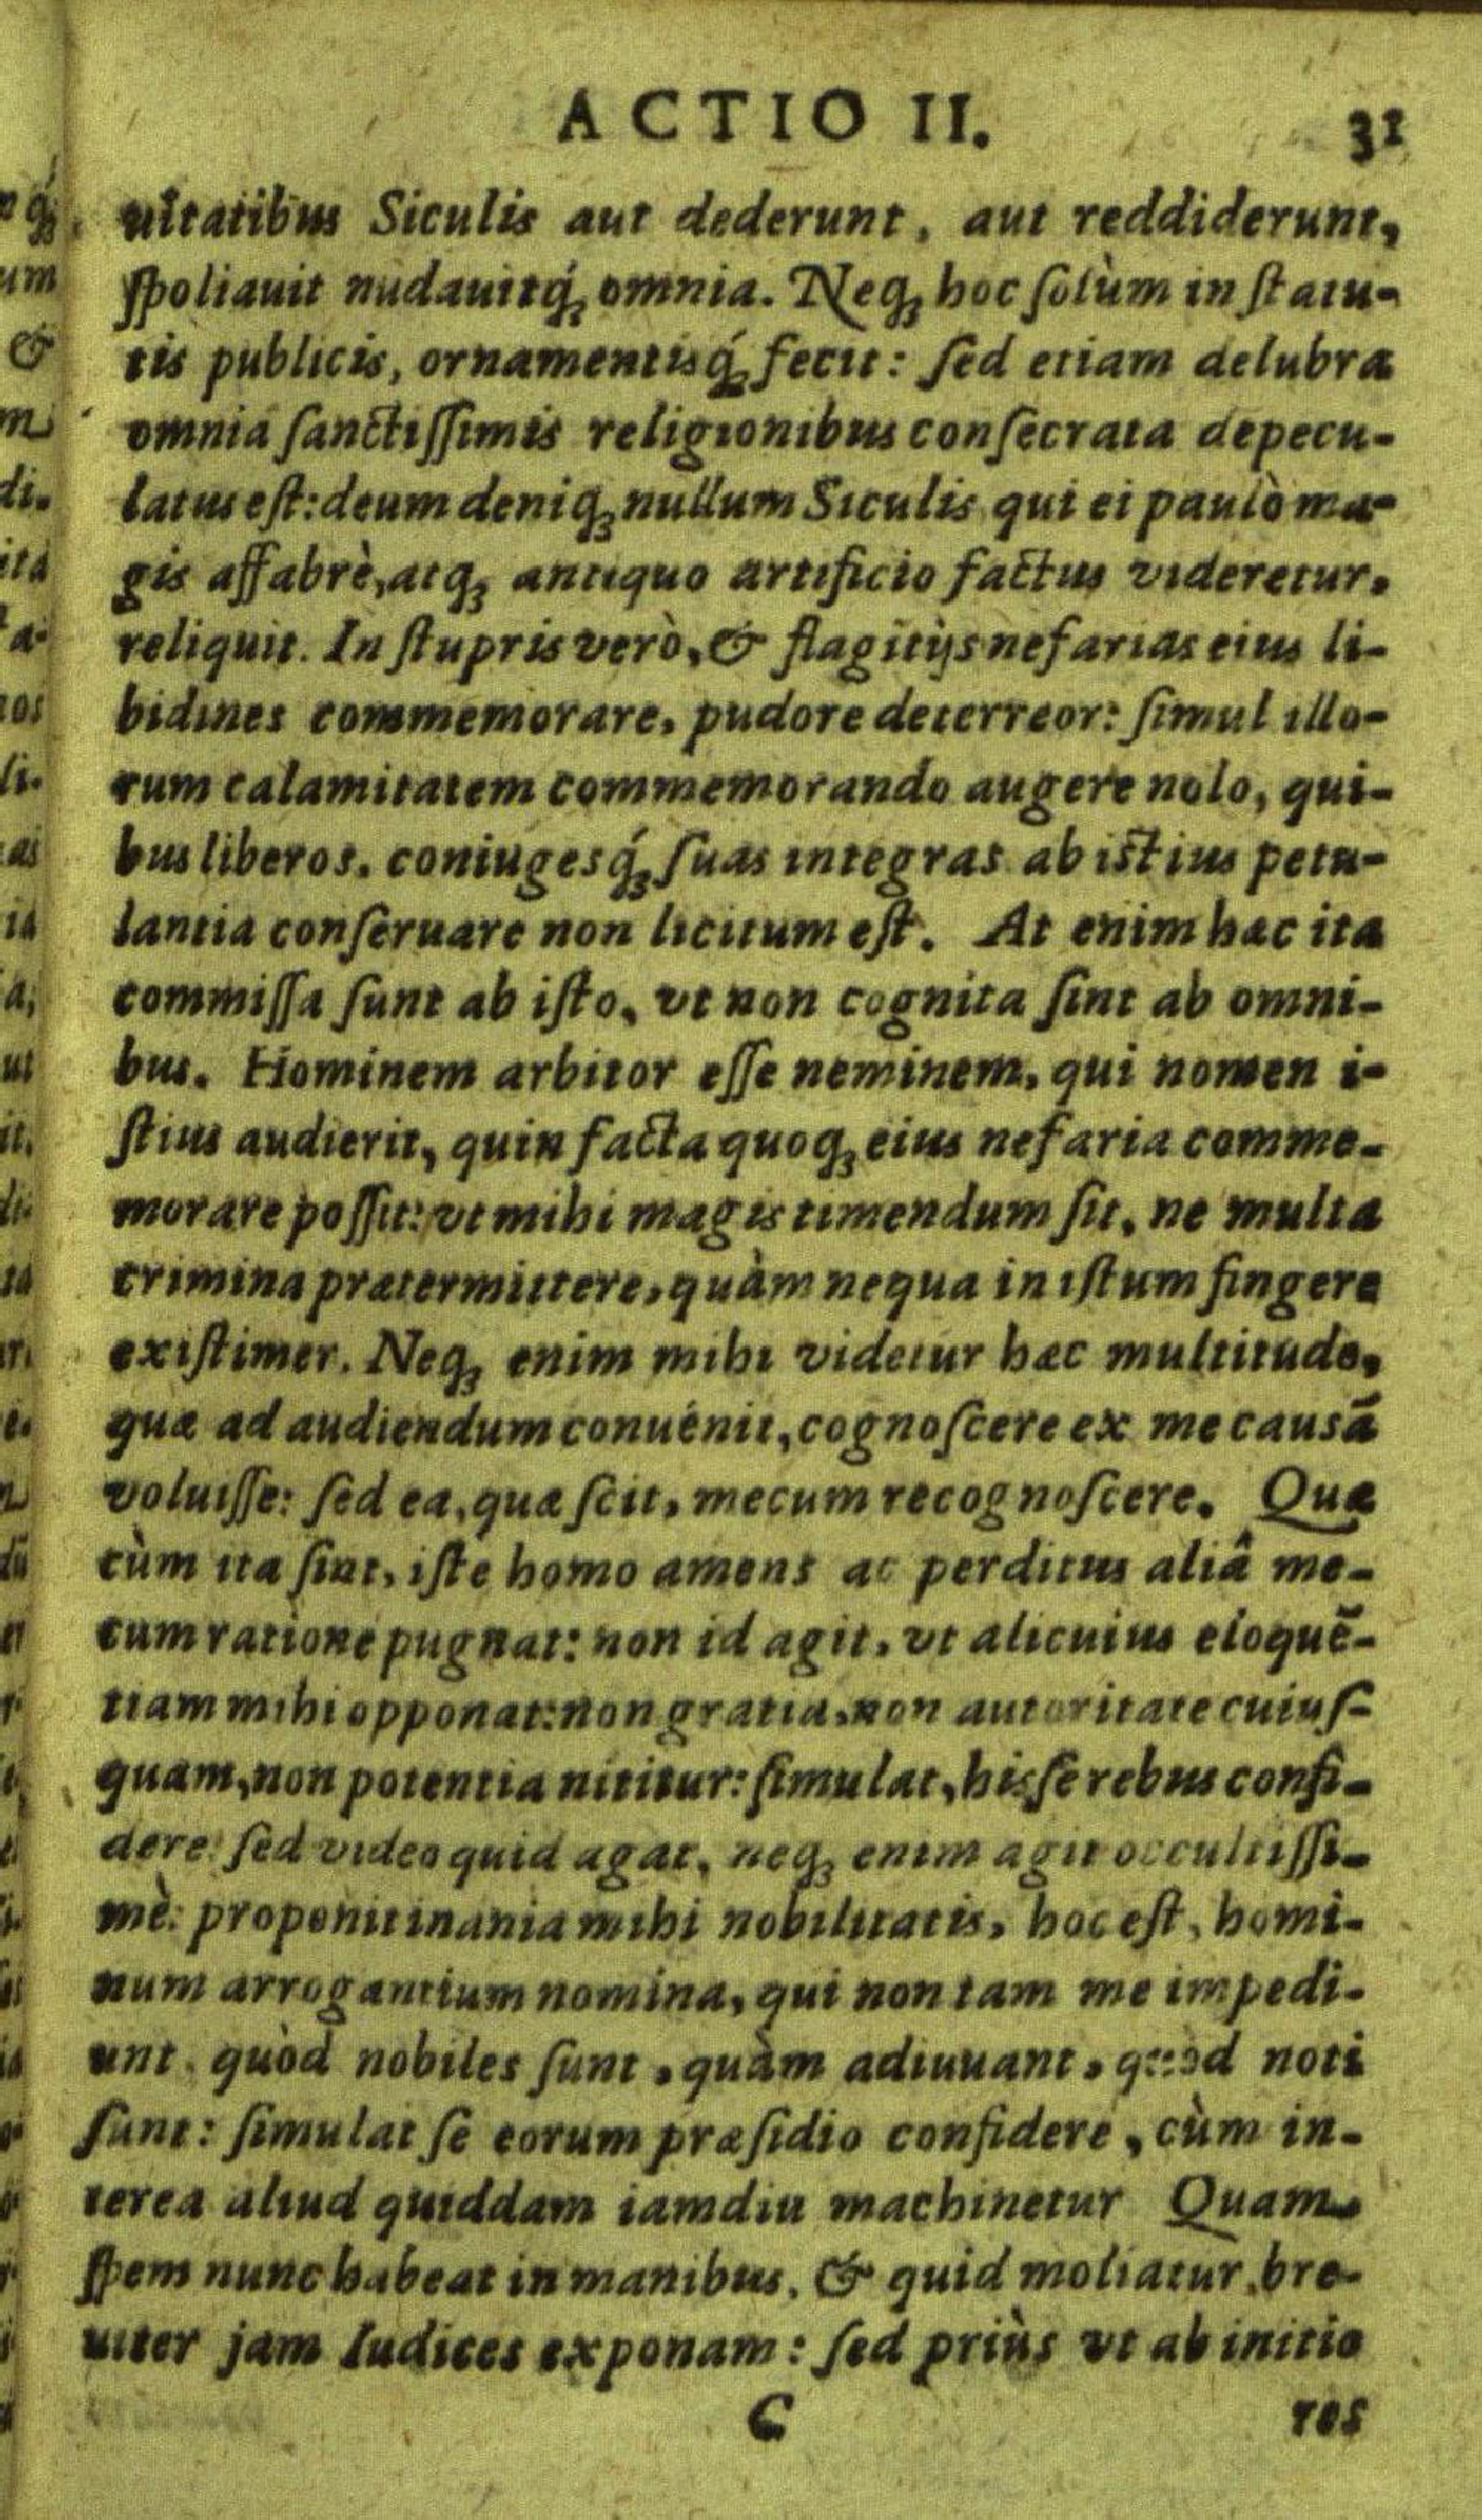 ACTIO II. 31
uitatibus Siculis aut dederunt, aut reddiderunt,
ſpoliauit nudauitq́ꝫ omnia. Neqꝫ hoc ſolùm in ſtatu-
tis publicis, ornamentisq́ꝫ fecit: ſed etiam delubra
omnia ſanctiſſimis religionibus conſecrata depecu-
latus eſt: deum deniqꝫ nullum Siculis qui ei paulò ma-
gis affabrè, atqꝫ antiquo artificio factus videretur,
reliquit. In ſtupris verò, & flagitijs nefarias eius li-
bidines commemorare, pudore deterreor: ſimul illo-
rum calamitatem commemorando augere nolo, qui-
bus liberos, coniugesq́ꝫ ſuas integras ab iſtius petu-
lantia conſeruare non licitum eſt. At enim hæc ita
commiſſa ſunt ab iſto, vt non cognita ſint ab omni-
bus. Hominem arbitor eſſe neminem, qui nomen i-
ſtius audierit, quin facta quoqꝫ eius nefaria comme-
morare poſſit: vt mihi magis timendum ſit, ne multa
crimina prætermittere, quàm nequa in iſtum fingere
exiſtimer. Neqꝫ enim mihi videtur hæc multitudo,
quæ ad audiendum conuénit, cognoſcere ex me causã
voluiſſe: ſed ea, quæ ſcit, mecum recognoſcere. Quæ
cùm ita ſint, iſte homo amens ac perditus aliâ me-
cum ratione pugnat: non id agit, vt alicuius eloquẽ-
tiam mihi opponat: non gratia, non autoritate cuiuſ-
quam, non potentia nititur: ſimulat, his ſe rebus confi-
dere: ſed video quid agat, neqꝫ enim agit occultiſſi-
mè: proponit inania mihi nobilitatis, hoc eſt, homi-
num arrogantium nomina, qui non tam me impedi-
unt quòd nobiles ſunt, quàm adiuuant, quòd noti
ſunt: ſimulat ſe eorum præſidio confidere, cùm in-
terea aliud quiddam iamdiu machinetur Quam
ſpem nunc habeat in manibus, & quid moliatur, bre-
uiter jam Iudices exponam: ſed priùs vt ab initio
C res